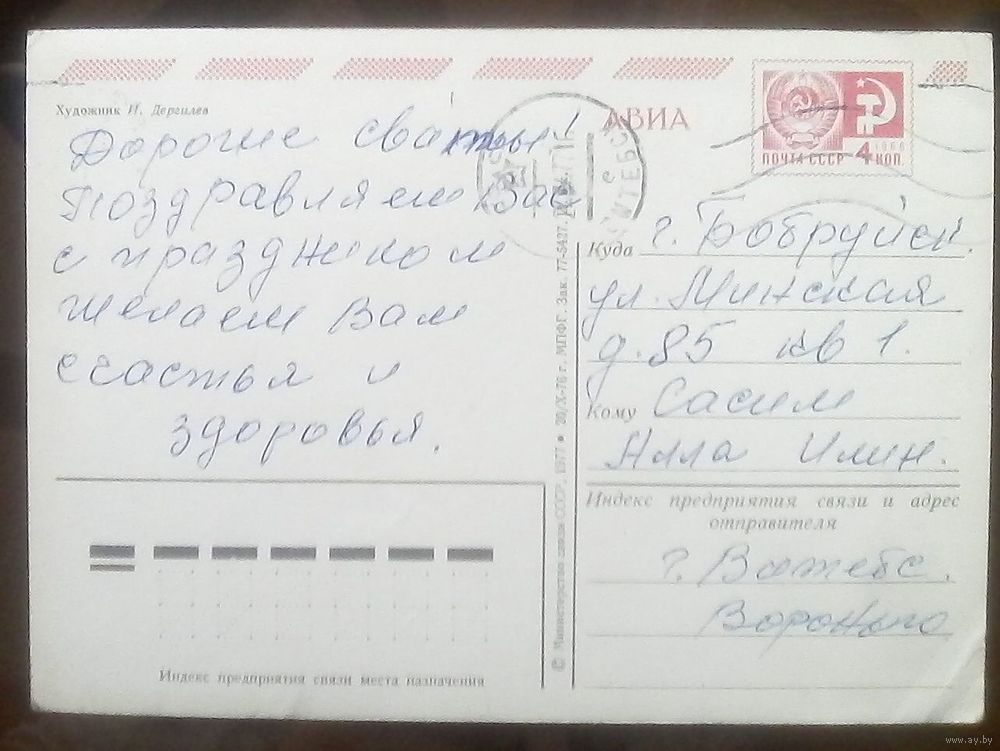 Художник И. Дергилев
Дорогие сваты!
Поздравляем Вас
с праздником
желаем Вам
счастья и
здоровья.
АВИА
ПОЧТА СССР 4 КОП.
1966
ВИТЕБСК
Куда г. Бобруйск.
ул. Минская
д. 85 кв 1.
Кому Сасим
Алла Илин.
Индекс предприятия связи и адрес
отправителя
г. Витебс.
Индекс предприятия связи места назначения
© Министерство связи СССР, 1977 ● 20/X-76 г. МПФГ. Зак. 77-5497.
www.ay.by